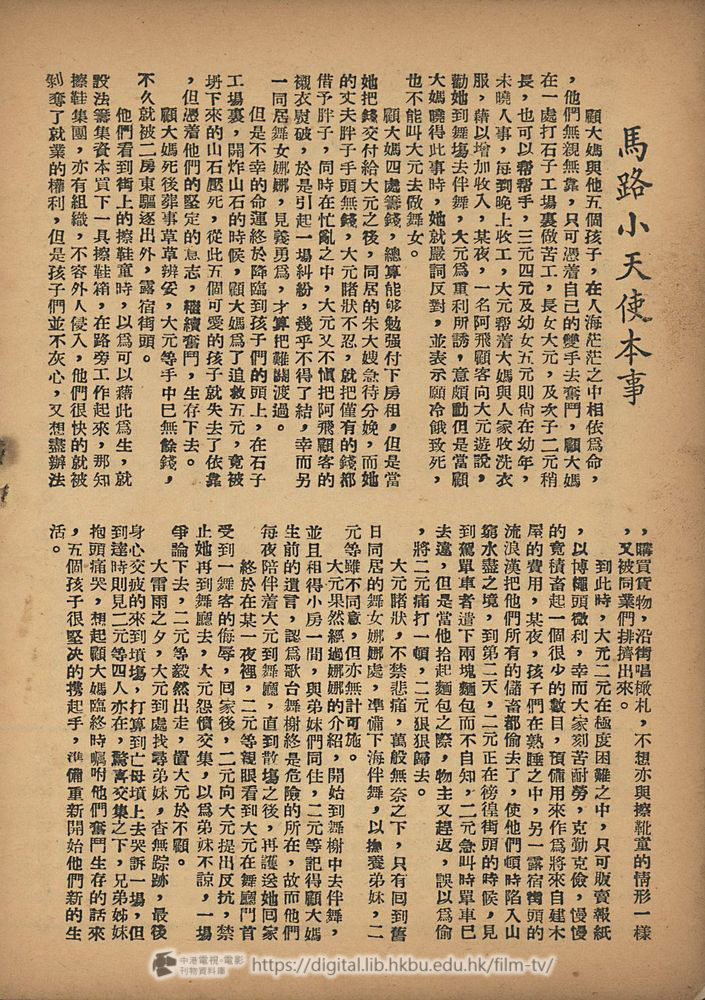 馬路小天使本事
顧大媽與他五個孩子，在人海茫茫之中相依爲命，
，他們無親無靠，只可憑着自己的雙手去奮鬥，顧大媽
在一處打石子工場裏做苦工，長女大元，及次子二元稍
長，也可以幫幫手，三元四元及幼女五元則尙在幼年，
未曉人事，每到晚上收工，大元帮着大媽與人家收洗衣
服，藉以增加收入，某夜，一名阿飛顧客向大元遊說，
勸她到舞塲去伴舞，大元爲重利所誘，意頗動但是當顧
大媽曉得此事時，她就嚴詞反對，並表示願冷餓致死，
也不能叫大元去做舞女。
顧大媽四處籌錢，總算能够勉强付下房租，但是當
她把錢交付給大元之後，同居的朱大嫂急待分娩，而她
的丈夫胖子手頭無錢，大元睹狀不忍，就把僅有的錢都
借予胖子，同時在忙亂之中，大元又不愼把阿飛顧客的
襯衣熨破，於是引起一塲糾紛，幾乎不得了結，幸而另
一同居舞女娜娜，見義勇爲，才算把難關渡過。
但是不幸的命運終於降臨到孩子們的頭上，在石子
工場裏，開炸山石的時候，顧大媽爲了追救五元，竟被
坍下來的山石壓死，從此五個可愛的孩子就失去了依靠
，但憑着他們的堅定的意志，繼續奮鬥，生存下去。
顧大媽死後葬事草草辨妥，大元等手中已無餘錢，
不久就被二房東驅逐出外，露宿街頭。
他們看到街上的擦鞋童時，以爲可以藉此爲生，就
設法籌集資本買下一具擦鞋箱，在路旁工作起來，那知
擦鞋集團，亦有組織，不容外人侵入，他們很快的就被
剝奪了就業的權利，但是孩子們並不灰心，又想盡辦法
，購買貨物，沿街唱橄札，不想亦與擦靴童的情形一樣
，又被同業們排擠出來。
到此時，大元二元在極度困難之中，只可販賣報紙
，以博蠅頭微利，幸而大家刻苦耐勞，克勤克儉，慢慢
的竟積畜起一個很少的數目，預備用來作爲將來自建木
屋的費用，某夜，孩子們在熟睡之中，另一露宿街頭的
流浪漢把他們所有的儲畜都偷去了，使他們頓時陷入山
窮水盡之境，到第二天，二元正在徬徨街頭的時候，見
到駕單車者遺下兩塊麵包而不自知，二元急叫時單車已
去遠，但是當他拾起麵包之際，物主又趕返，誤以爲偷
，將二元痛打一頓，二元狠狠歸去。
大元睹狀，不禁悲痛，萬般無奈之下，只有回到舊
日同居的舞女娜娜處，準備下海伴舞，以撫養弟妹，二
元等雖不同意，但亦無計可施。
大元果然經過娜娜的介紹，開始到舞榭中去伴舞，
並且租得小房一間，與弟妹們同住，二元等記得顧大媽
生前的遺言，認爲歌台舞榭終是危險的所在，故而他們
每夜陪伴着大元到舞廳，直到散塲之後，再護送她回家
終於在某一夜裡，二元等親眼看到大元在舞廳門首
受到一舞客的侮辱，回家後，二元向大元提出反抗，禁
止她再到舞廳去，大元怨憤交集，以爲弟妹不諒，一場
爭論下去，二元等毅然出走，置大元於不顧。
大雷雨之夕，大元到處找尋弟妹，杳無踪跡，最後
身心交疲的來到墳塲，打算到亡母墳上去哭訴一塲，但
到達時則見二元等四人亦在，驚喜交集之下，兄弟姊妹
抱頭痛哭，想起顧大媽臨終時囑咐他們奮鬥生存的話來
，五個孩子很堅决的携起手，準備重新開始他們新的生
活。
中港電視·電影
刊物資料庫
https://digital.lib.hkbu.edu.hk/film-tv/